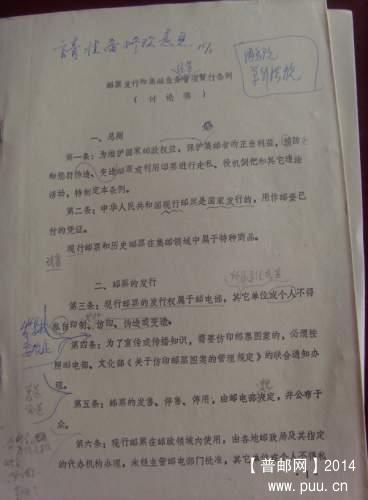 請准备修改意见
邮票发行和集邮业务管理暂行条例
(讨论稿)
一、总则
第一条：为维护国家邮政权益，保护集邮者的正当利益，预防
和惩特伪造、变造邮票或利用邮票进行走私、投机倒把和其它违法
活动，特制定本条例。
第二条：中华人民共和国现行邮票是国家发行的，用作邮资已
付的凭证。
现行邮票和历史邮票在集邮领域中属于特种商品。
二、邮票的发行
第三条：现行邮票的发行权属于邮电部，其它单位或个人不得
私自印制、仿印、伪造或变造。
第四条：为了宣传或传播知识，需要仿印邮票图案的，必须按
照邮电部、文化部《关于仿印邮票图案的管理规定》的联合通知办
理。
第五条：邮票的发售、停售、停用，由邮电部决定，并公布于
众。
第六条：现行邮票在邮政领域内使用，由各地邮政局及其指定
的代办机构办理，未经主管邮电部门批准，其它单位或个人不得
【普邮网】2014
www.puu.cn